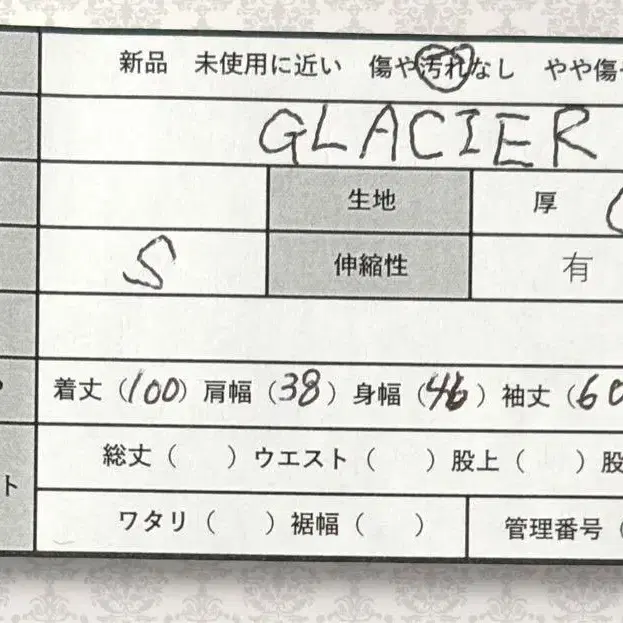 新品 未使用に近い 傷や汚れなし やや傷
GLACIER
生地 厚
S 伸縮性 有
着丈（100）肩幅（38）身幅（46）袖丈（60
総丈（ ）ウエスト（ ）股上（ ）股
ト
ワタリ（ ）裾幅（ ） 管理番号（